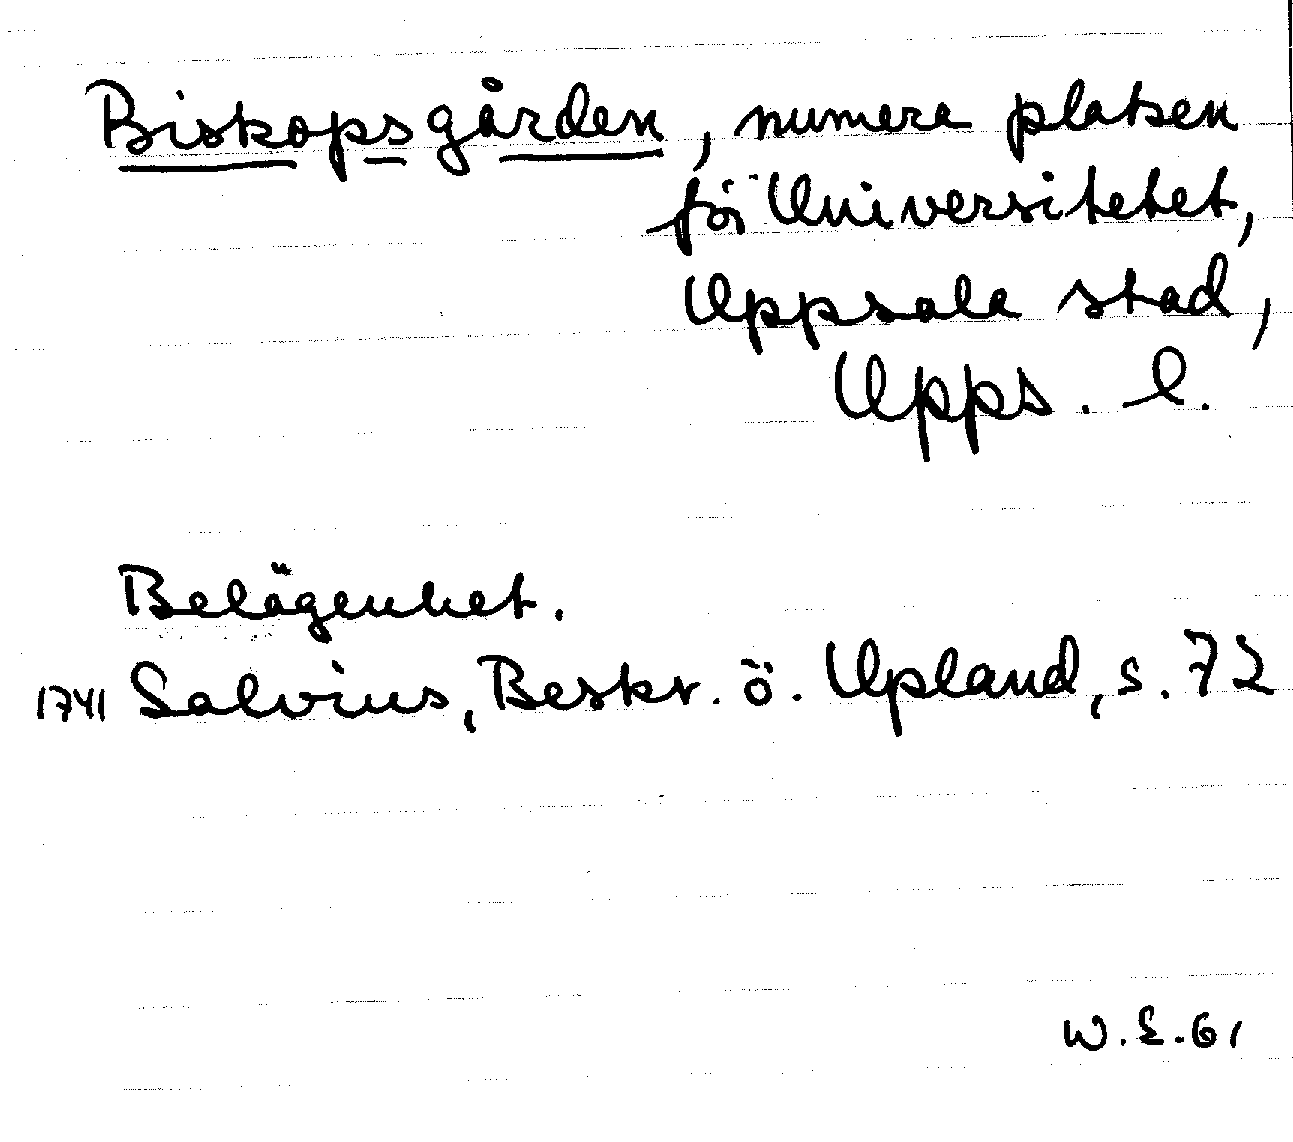 Biskopsgården, numera platsen
för Universitetet,
Uppsala stad,
Upps. l.
Belägenhet.
1741 Salvius, Beskr. ö. Upland, s. 72
W. E. 61